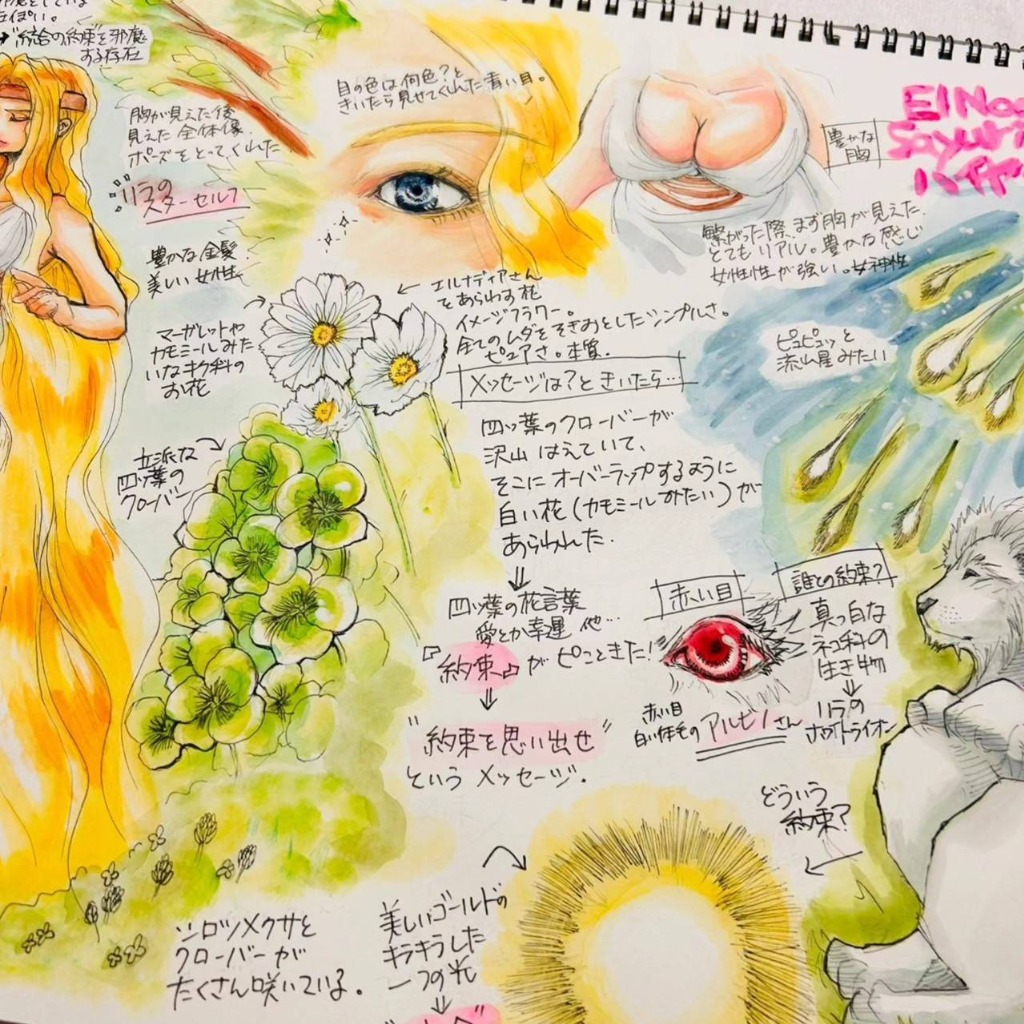 "結合の約束"を邪魔
する存在
胸が見えた後
見えた全体像.
ポーズをとってくれた
リラの
スターセルフ
豊かな金髪
美しい女性
目の色は何色?と
きいたら見せてくれた青い目。
豊かな
胸
El Na
Sayuri
ハイヤ
繋がった際、まず胸が見えた.
とてもリアル。豊かな感じ
女性性が強い。女神性
← エルナディアさん
をあらわす花
イメージフラワー。
全てのムダをそぎおとしたシンプルさ。
ピュアさ。本質.
マーガレットや
カモミールみた
いなキク科の
お花
ピュピュッと
流れ星みたい
メッセージは?ときいたら…
四ッ葉のクローバーが
沢山はえていて、
そこにオーバーラップするように
白い花(カモミールみたい)が
あらわれた.
立派な
四ッ葉の
クローバー
四ッ葉の花言葉
愛とか幸運 他…
『約束』がピンときた!
"約束を思い出せ"
というメッセージ.
赤い目
赤い目
白い体毛の
アルビノさん
誰との約束?
真っ白な
ネコ科の
生き物
リラの
ホワイトライオン
どういう
約束?
シロツメクサと
クローバーが
たくさん咲いている.
美しいゴールドの
キラキラした
一つの光